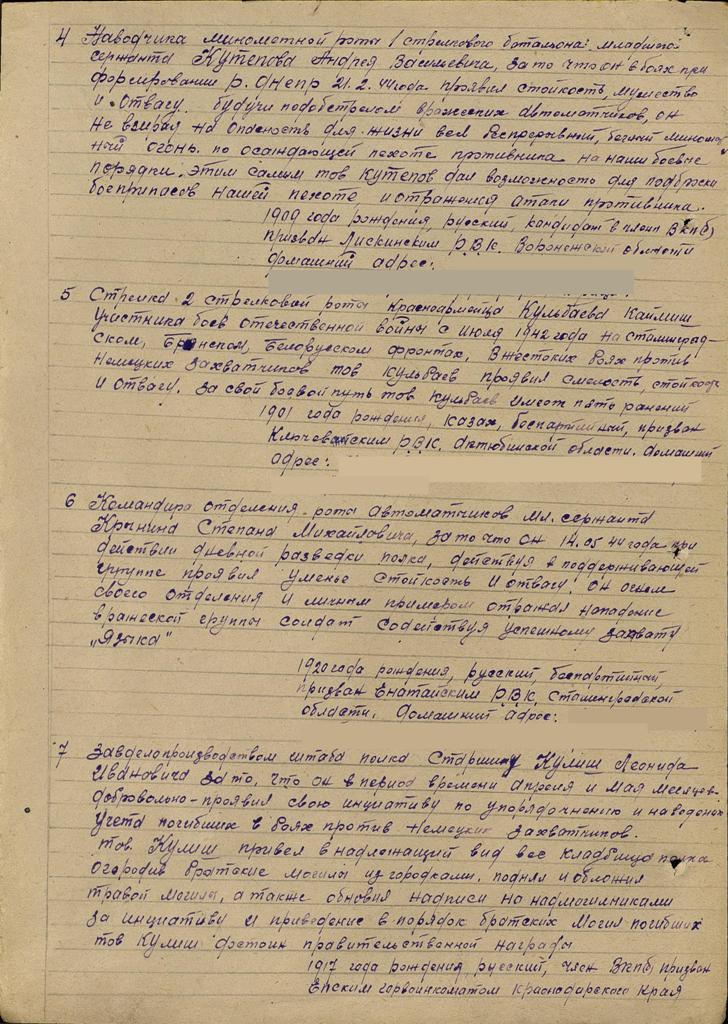 4 Наводчика минометной роты 1 стрелкового батальона младшего
сержанта Кутепова Андрея Васильевича, за то что он в боях при
форсировании р. Днепр 21.2.44 года проявил стойкость, мужество
и отвагу. Будучи под обстрелом вражеских автоматчиков, он
не взирая на опасность для жизни вел беспрерывный, беглый миномет
ный огонь по осаждающей пехоте противника на наши боевые
порядки, этим самым тов Кутепов дал возможность для подброски
боеприпасов нашей пехоте и отражения атаки противника.
1909 года рождения, русский, кандидат в члены ВКП(б)
призван Лискинским Р.В.К. Воронежской области
домашний адрес:
5 Стрелка 2 стрелковой роты Красноармейца Кульбаева Каймиш
Участника боев отечественной войны с июля 1942 года на Сталинград-
ском, Брянском, Белорусском фронтах. В жестоких боях против
немецких захватчиков тов Кульбаев проявил смелость, стойкость
и отвагу. За свой боевой путь тов Кульбаев имеет пять ранений
1901 года рождения, казах, беспартийный, призван
Р.В.К. Актюбинской области. Домашний
адрес:
6 Командира отделения роты автоматчиков мл. сержанта
Крынина Степана Михайловича, за то что он 14.05 44 года при
действии дневной разведки полка, действуя в поддерживающей
группе проявил уменье стойкость и отвагу. Он огнем
своего отделения и личным примером отражал нападение
вражеской группы солдат содействуя успешному захвату
„Языка"
1920 года рождения, русский, беспартийный,
призван Енатайским Р.В.К. Сталинградской
области. Домашний адрес:
7 Завделопроизводством штаба полка Старшину Кулиш Леонида
Ивановича за то, что он в период времени апреля и мая месяцев
добровольно-проявил свою инициативу по упорядочнению и наведению
учета погибших в боях против немецких захватчиков.
тов Кулиш привел в надлежащий вид все кладбища полка
огородив братские могилы изгородками, поднял и обложил
травой могилы, а также обновил надписи на надмогильниками
за инициативу и приведение в порядок братских могил погибших
тов Кулиш достоин правительственной награды
1917 года рождения, русский, член ВКП(б) призван
Ейским горвоенкоматом Краснодарского Края